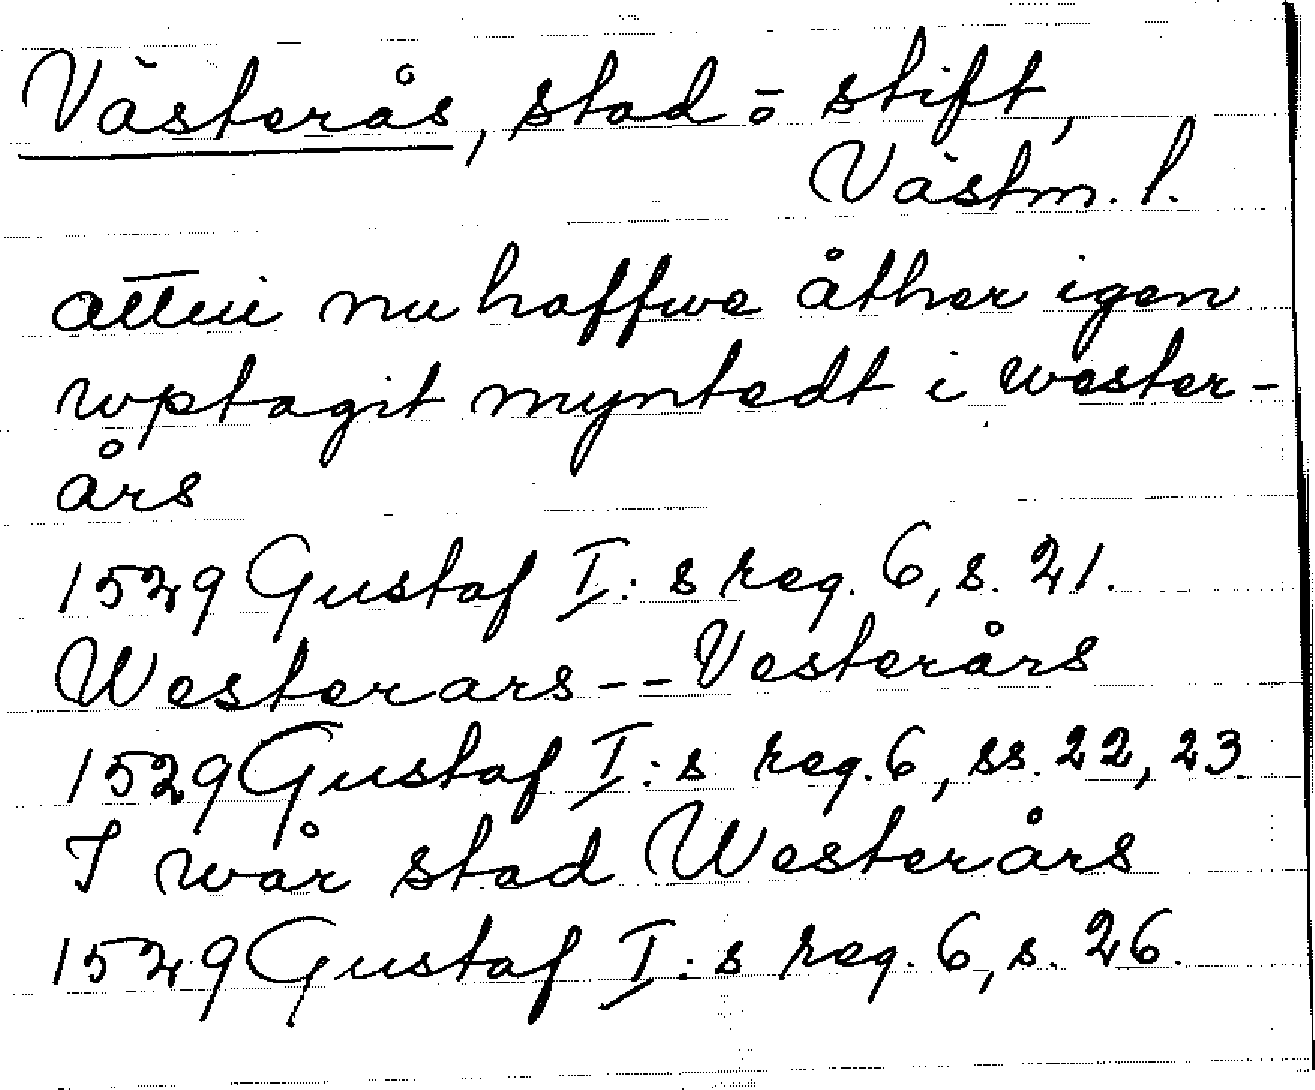 Västerås, stad o stift,
Västm. l.
attui nu haffwe åther igen
wptagit myntedt i wester-
års
1529 Gustaf I:s reg. 6, s. 21.
Westerars -- Vesterårs
1529 Gustaf I:s reg. 6, ss. 22, 23.
I wår stad Westerårs
1529 Gustaf I:s reg. 6, s. 26.